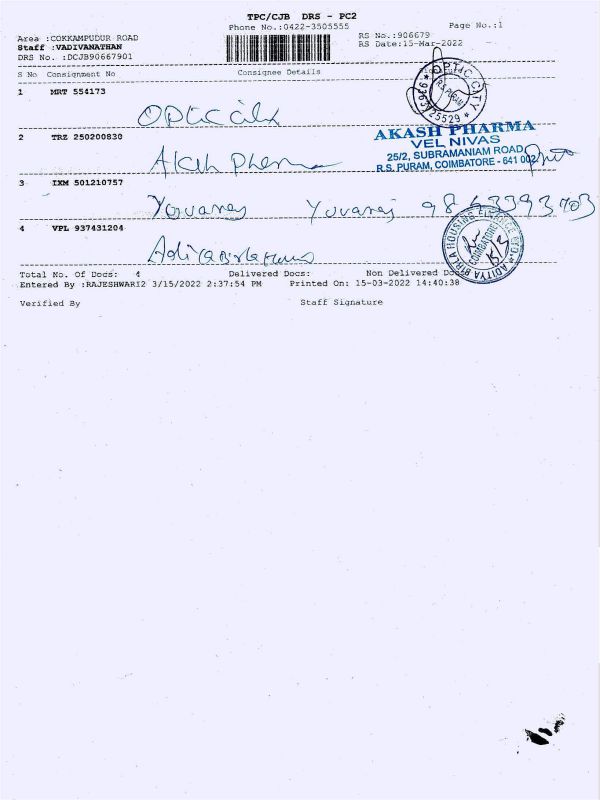 TPC/CJB DRS - PC2
Phone No.:0422-3505555
Page No.:1
Area :COKKAMPUDUR ROAD
RS No.:906679
Staff :VADIVANATHAN
RS Date:15-Mar-2022
DRS No. :DCJB90667901
S No Consignment No Consignee Details
1 MRT 554173
OPTIC CITY
R.S. PURAM
2 TRZ 250200830
Akash Pharma
AKASH PHARMA
VEL NIVAS
25/2, SUBRAMANIAM ROAD,
R.S. PURAM, COIMBATORE - 641 002
3 IXM 501210757
Yuvaraj
4 VPL 937431204
ADITYA BIRLA HOUSING FINANCE LTD.
COIMBATORE
Total No. Of Docs: 4 Delivered Docs: Non Delivered Docs
Entered By :RAJESHWARI2 3/15/2022 2:37:54 PM Printed On: 15-03-2022 14:40:38
Verified By Staff Signature